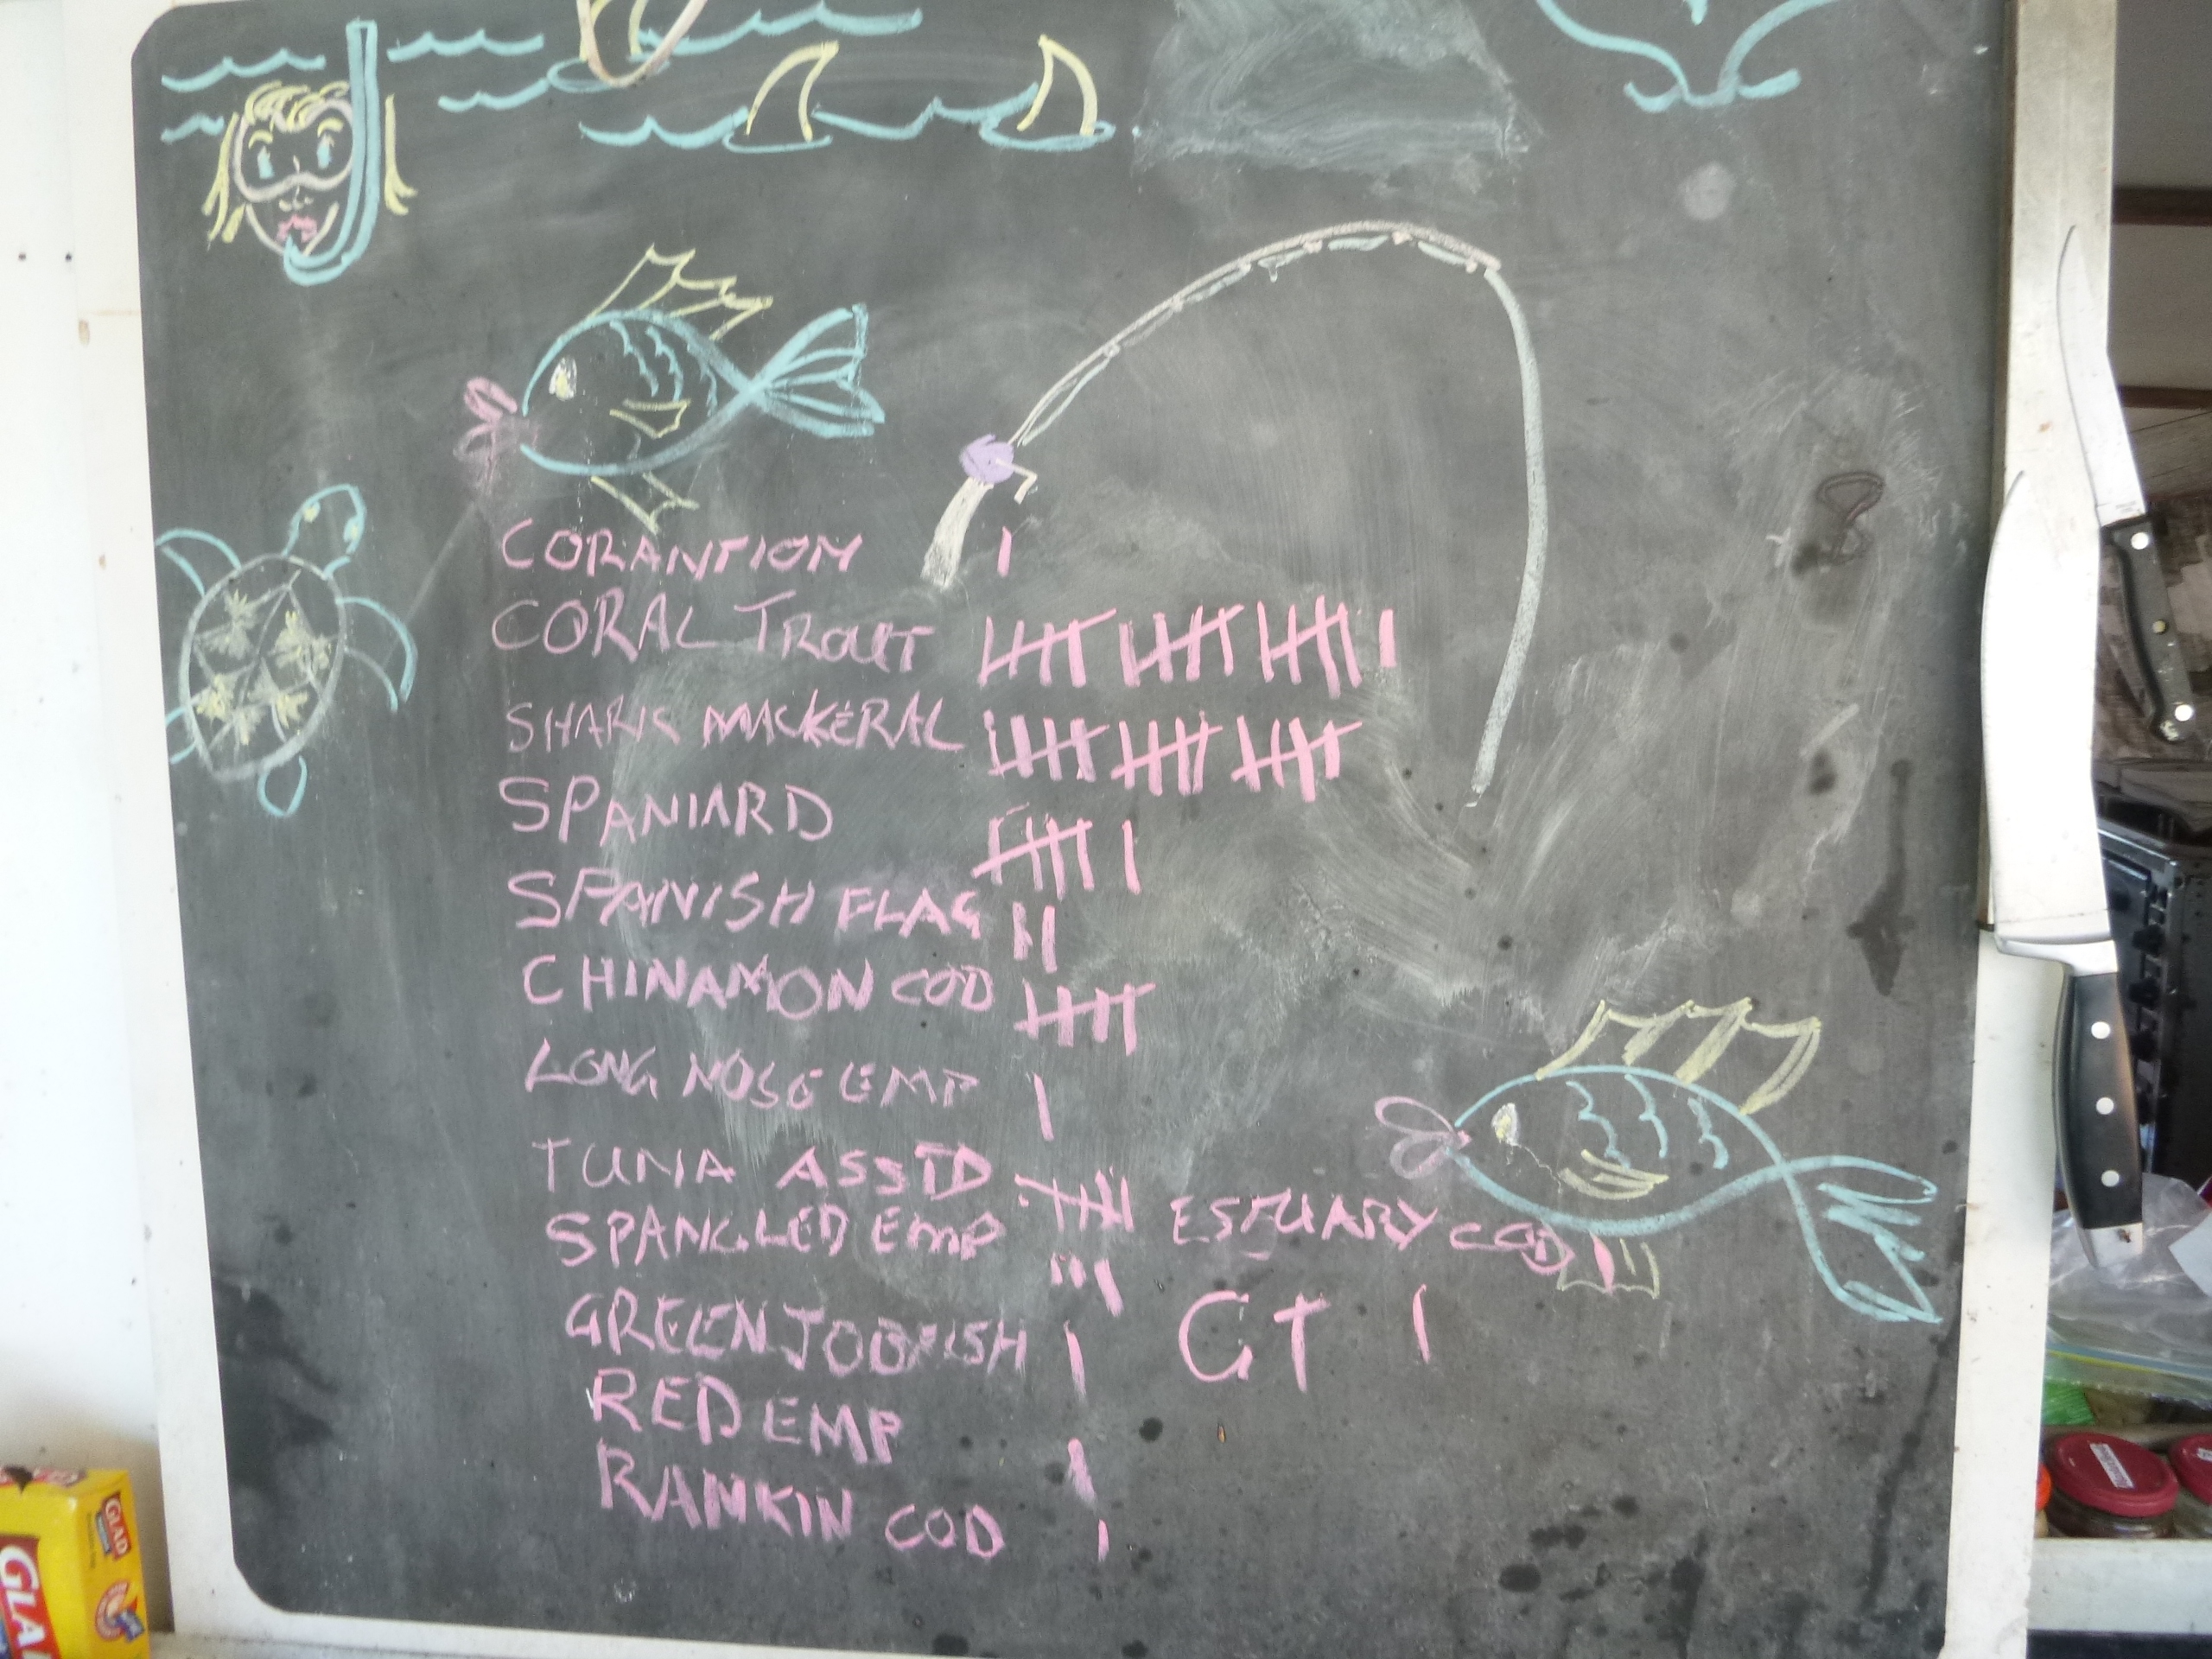 CORANTION I
CORAL TROUT
SHARK MACKERAL
SPANIARD
SPANISH FLAG II
CHINAMON COD
LONG NOSE EMP I
TUNA ASSTD
SPANGLED EMP III
GREEN JOBFISH I
RED EMP I
RANKIN COD I
ESTUARY COD I
GT I
GLAD
GLAD